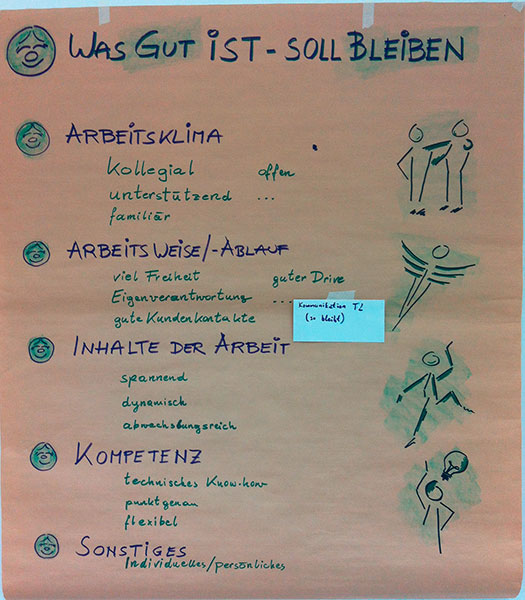 WAS GUT IST - SOLL BLEIBEN
ARBEITSKLIMA
Kollegial offen
unterstützend ...
familiär
ARBEITSWEISE/-ABLAUF
viel Freiheit guter Drive
Eigenverantwortung ...
gute Kundenkontakte
Kommunikation TL
(so bleibt)
INHALTE DER ARBEIT
spannend
dynamisch
abwechslungsreich
KOMPETENZ
technisches Know-how
punktgenau
flexibel
SONSTIGES
Individuelles/persönliches